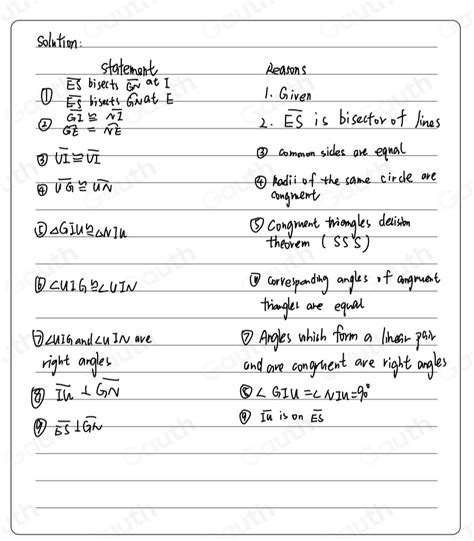 Solution:
Statement Reasons
① E͞S bisects G͞N at I
E͞S bisects G͡N at E 1. Given
② G͞I ≅ N͞I
G͡E = N͡E 2. E͞S is bisector of lines
③ U͞I ≅ U͞I ③ common sides are equal
④ U͞G ≅ U͞N ④ Radii of the same circle are
congruent
⑤ △GIU ≅ △NIU ⑤ Congruent triangles decision
theorem (SSS)
⑥ ∠UIG ≅ ∠UIN ⑥ corresponding angles of congruent
triangles are equal
⑦ ∠UIG and ∠UIN are ⑦ Angles which form a linear pair
right angles and are congruent are right angles
⑧ I͞U ⊥ G͞N ⑧ ∠GIU = ∠NIU = 90°
⑨ E͞S ⊥ G͞N ⑨ I͞U is on E͞S